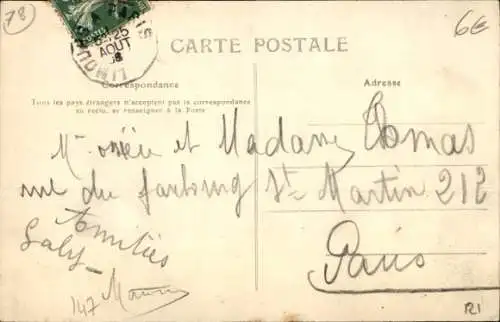 78
6€
25
AOUT
08
LIMOURS
CARTE POSTALE
Correspondance
Adresse
Tous les pays étrangers n'acceptent pas la correspondance
au recto, se renseigner à la Poste
et Madame Thomas
rue du farbourg St Martin 212
Paris
Amitiés
147